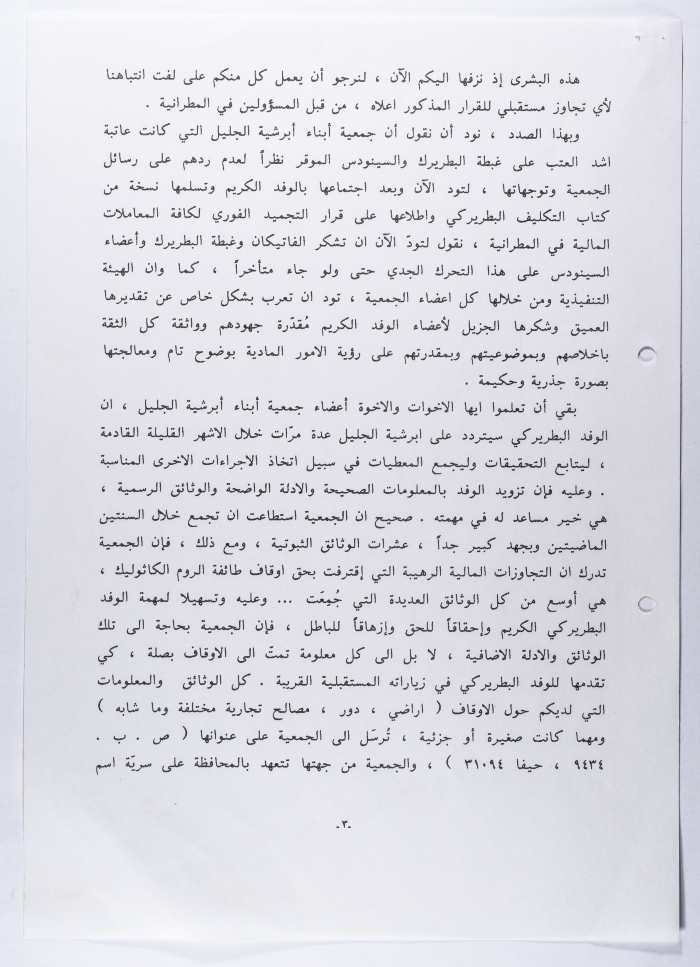 هذه البشرى إذ نزفها اليكم الآن ، لنرجو أن يعمل كل منكم على لفت انتباهنا
لأي تجاوز مستقبلي للقرار المذكور اعلاه ، من قبل المسؤولين في المطرانية .
وبهذا الصدد ، نود أن نقول أن جمعية أبناء أبرشية الجليل التي كانت عاتبة
اشد العتب على غبطة البطريرك والسينودس الموقر نظراً لعدم ردهم على رسائل
الجمعية وتوجهاتها ، لتود الآن وبعد اجتماعها بالوفد الكريم وتسلمها نسخة من
كتاب التكليف البطريركي واطلاعها على قرار التجميد الفوري لكافة المعاملات
المالية في المطرانية ، نقول لتودّ الآن ان تشكر الفاتيكان وغبطة البطريرك وأعضاء
السينودس على هذا التحرك الجدي حتى ولو جاء متأخراً ، كما وان الهيئة
التنفيذية ومن خلالها كل اعضاء الجمعية ، تود ان تعرب بشكل خاص عن تقديرها
العميق وشكرها الجزيل لأعضاء الوفد الكريم مُقدّرة جهودهم وواثقة كل الثقة
باخلاصهم وبموضوعيتهم وبمقدرتهم على رؤية الامور المادية بوضوح تام ومعالجتها
بصورة جذرية وحكيمة .
بقي أن تعلموا ايها الاخوات والاخوة أعضاء جمعية أبناء أبرشية الجليل ، ان
الوفد البطريركي سيتردد على ابرشية الجليل عدة مرّات خلال الاشهر القليلة القادمة
، ليتابع التحقيقات وليجمع المعطيات في سبيل اتخاذ الاجراءات الاخرى المناسبة
. وعليه فإن تزويد الوفد بالمعلومات الصحيحة والادلة الواضحة والوثائق الرسمية ،
هي خير مساعد له في مهمته . صحيح ان الجمعية استطاعت ان تجمع خلال السنتين
الماضيتين وبجهد كبير جداً ، عشرات الوثائق الثبوتية ، ومع ذلك ، فإن الجمعية
تدرك ان التجاوزات المالية الرهيبة التي إقترفت بحق اوقاف طائفة الروم الكاثوليك ،
هي أوسع من كل الوثائق العديدة التي جُمِعَت ... وعليه وتسهيلا لمهمة الوفد
البطريركي الكريم وإحقاقاً للحق وإزهاقاً للباطل ، فإن الجمعية بحاجة الى تلك
الوثائق والادلة الاضافية ، لا بل الى كل معلومة تمتّ الى الاوقاف بصلة ، كي
تقدمها للوفد البطريركي في زياراته المستقبلية القريبة . كل الوثائق والمعلومات
التي لديكم حول الاوقاف ( اراضي ، دور ، مصالح تجارية مختلفة وما شابه )
ومهما كانت صغيرة أو جزئية ، تُرسَل الى الجمعية على عنوانها ( ص . ب .
٩٤٣٤ ، حيفا ٣١٠٩٤ ) ، والجمعية من جهتها تتعهد بالمحافظة على سريّة اسم
-٣-